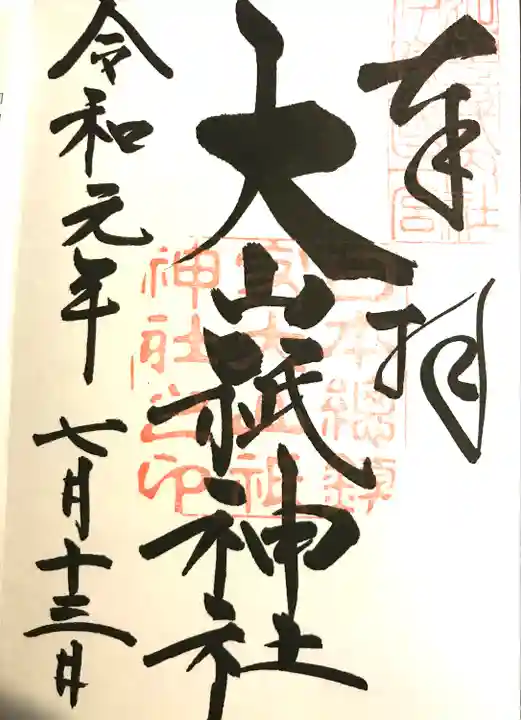 奉拝
大山祇神社
日本總鎮
守大山祇
神社之印
令和元年 七月十三日